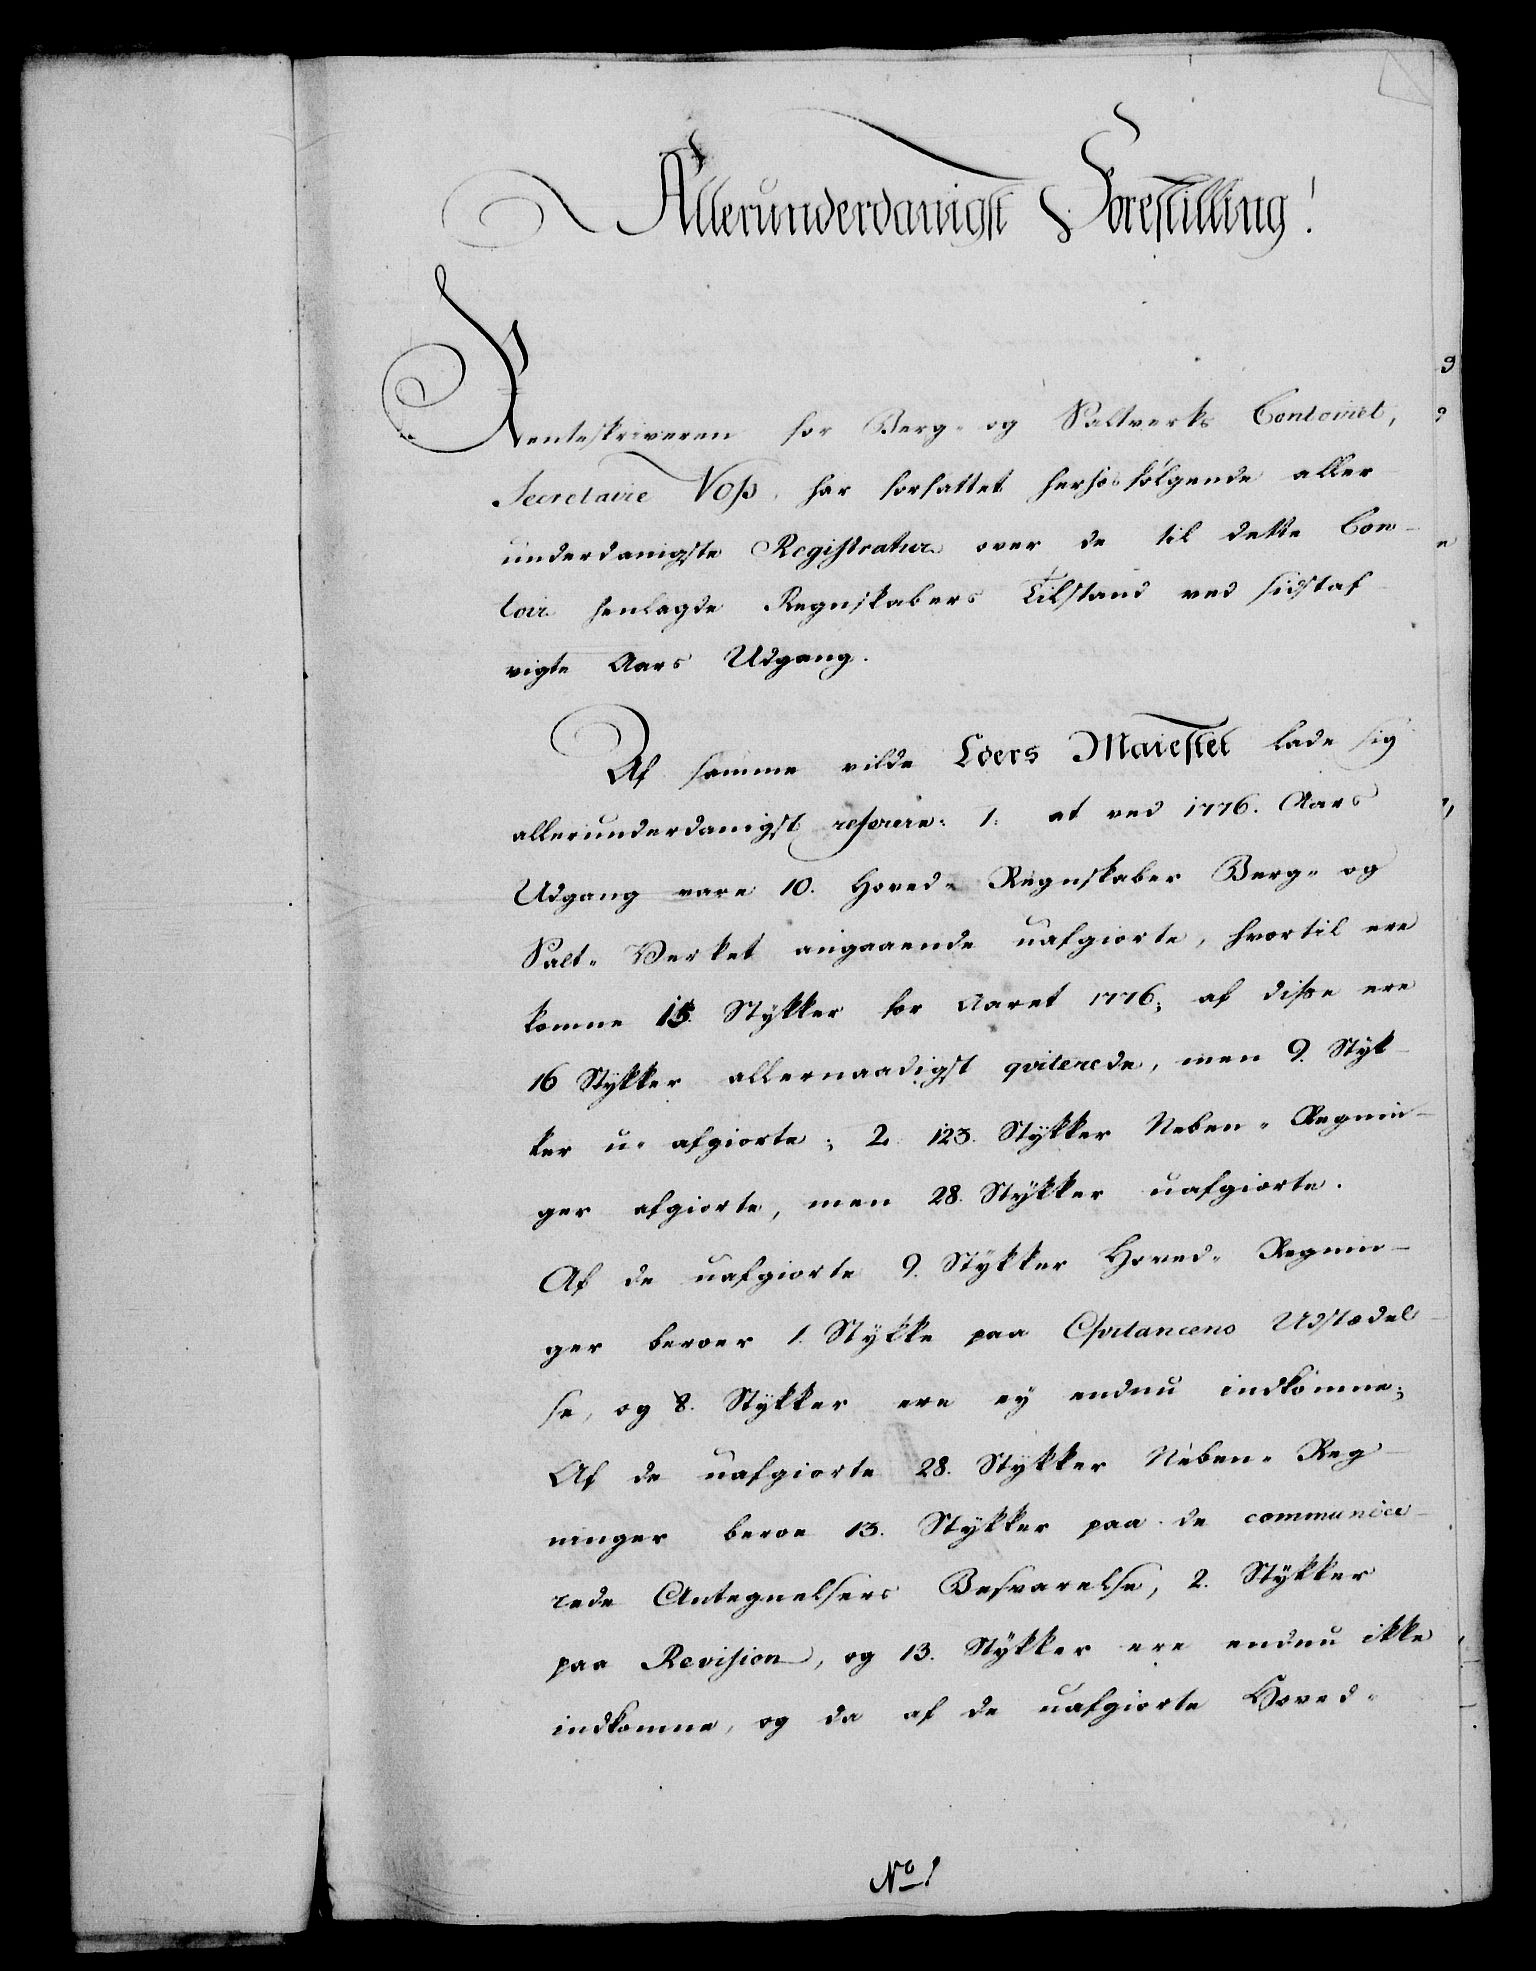 Allerunderdanigst Forestilling!
Renteskriveren for Berg- og Saltverks Contoiret,
Secretaire Voss, har forfattet herhosfølgende aller
underdanigste Registratur over de til dette Con-
toir henlagde Regnskabers Tilstand ved sidstaf
vigte Aars Udgang.
Af samme vilde Eders Majestet lade sig
allerunderdanigst referere: 1. at ved 1776. Aars
Udgang vare 10. Hoved- Regnskaber Berg- og
Salt- Verket angaaende uafgiorte, hvortil ere
komne 15. Stykker for Aaret 1776; af disse ere
16 Stykker allernaadigst qviterede, men 9. Styk-
ker u- afgiorte; 2. 123. Stykker Neben- Regnin-
ger afgiorte, men 28. Stykker uafgiorte.
Af de uafgiorte 9. Stykker Hoved- Regnin-
ger beroer 1. Stykke paa Qvitancens Udstædel-
se, og 8. Stykker ere ey endnu indkomne;
Af de uafgiorte 28. Stykker Neben- Reg-
ninger beroe 13. Stykker paa de communice-
rede Antegnelsers Besvarelse, 2. Stykker
paa Revision, og 13. Stykker ere endnu ikke
indkomne, og da af de uafgiorte Hoved-
No 1